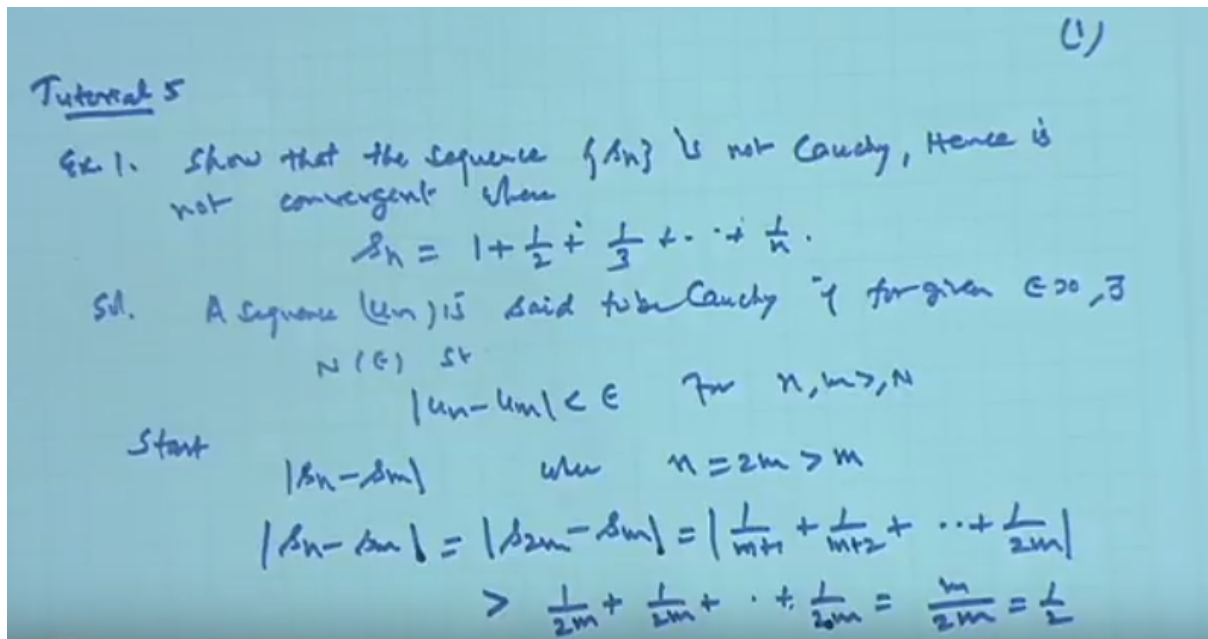 (1)
Tutorial 5
Ex 1. Show that the sequence {sn} is not Cauchy, Hence is
not convergent where
sn = 1 + 1/2 + 1/3 + . . . + 1/n .
Sol. A sequence (un) is said to be Cauchy if for given ∈>0, ∃
N(∈) st
|un - um| < ∈ for n, m ≥ N
Start
|sn - sm| when n = 2m > m
|sn - sm| = |s2m - sm| = |1/m+1 + 1/m+2 + . . + 1/2m|
> 1/2m + 1/2m + . . + 1/2m = m/2m = 1/2